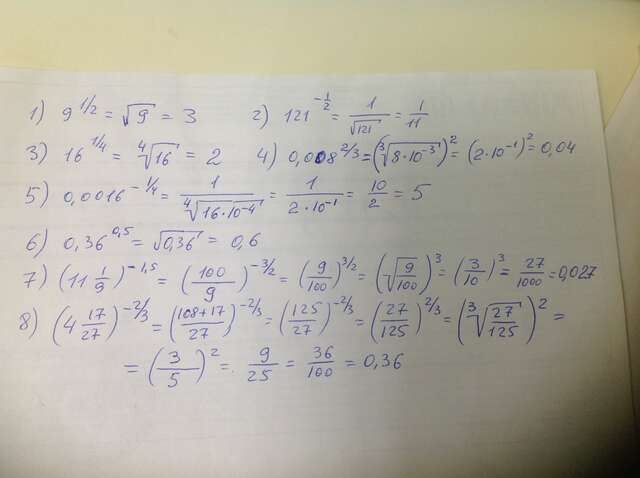 1) 9^(1/2) = √9 = 3 2) 121^(-1/2) = 1/√121 = 1/11
3) 16^(1/4) = ⁴√16 = 2 4) 0,008^(2/3) = (³√(8·10^(-3)))^2 = (2·10^(-1))^2 = 0,04
5) 0,0016^(-1/4) = 1/⁴√(16·10^(-4)) = 1/(2·10^(-1)) = 10/2 = 5
6) 0,36^(0,5) = √0,36 = 0,6
7) (11 1/9)^(-1,5) = (100/9)^(-3/2) = (9/100)^(3/2) = (√(9/100))^3 = (3/10)^3 = 27/1000 = 0,027
8) (4 17/27)^(-2/3) = ((108+17)/27)^(-2/3) = (125/27)^(-2/3) = (27/125)^(2/3) = (³√(27/125))^2 =
= (3/5)^2 = 9/25 = 36/100 = 0,36